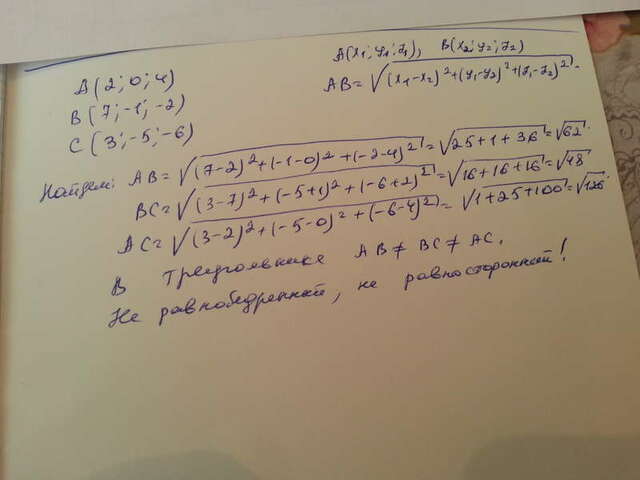 A(x₁; y₁; z₁), B(x₂; y₂; z₂)
AB = √((x₁-x₂)²+(y₁-y₂)²+(z₁-z₂)²).
A(2; 0; 4)
B(7; -1; -2)
C(3; -5; -6)
Найдем: AB = √((7-2)²+(-1-0)²+(-2-4)²) = √(25+1+36) = √62.
BC = √((3-7)²+(-5+1)²+(-6+2)²) = √(16+16+16) = √48
AC = √((3-2)²+(-5-0)²+(-6-4)²) = √(1+25+100) = √126
В треугольнике AB ≠ BC ≠ AC.
Не равнобедренный, не равносторонний!